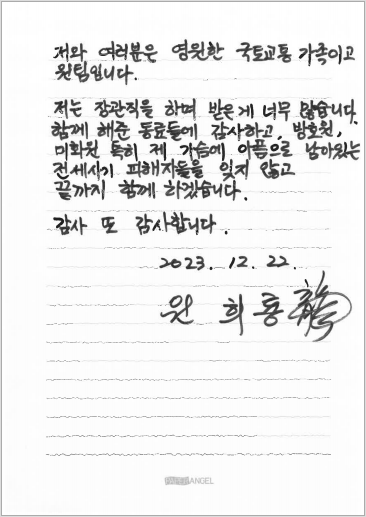 저와 여러분은 영원한 국토교통 가족이고
원팀입니다.
저는 장관직을 하며 받은게 너무 많습니다.
함께 해준 동료들에 감사하고, 방호원,
미화원 특히 제 가슴에 아픔으로 남아있는
전세사기 피해자들을 잊지 않고
끝까지 함께 하겠습니다.
감사 또 감사합니다.
2023. 12. 22.
원 희 룡
ANGEL